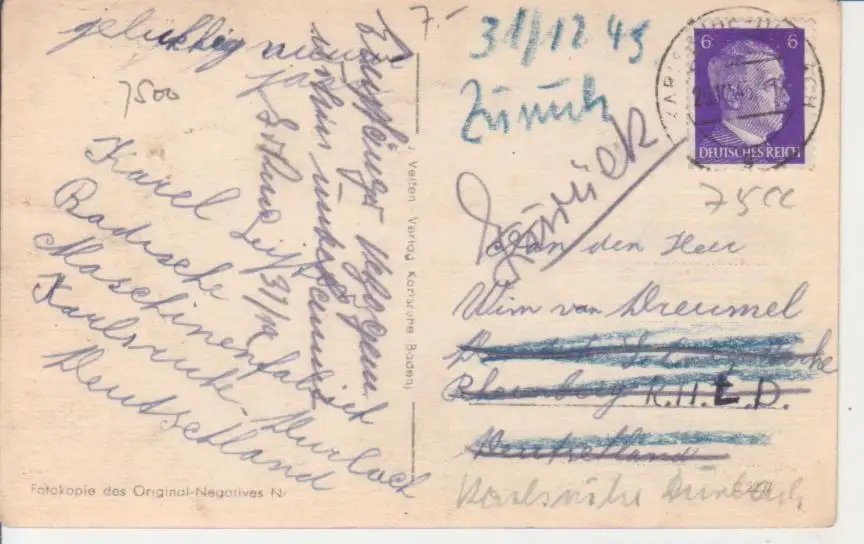 gelukkig nieuw
jaar
7500
Karel
Badische
Maschinenfabrik
Karlsruhe - Durlach
Deutschland
Fotokopie des Original-Negatives Nr
Empfänger verzogen
wohin unbekannt
31/12
Velten - Verlag Karlsruhe Baden
7.-
31/12 43
Zurück
6 6
DEUTSCHES REICH
Zurück
7500
Aan den Heer
Wim van Dreumel
Rheinberg R.H.L.D.
Deutschland
Karlsruhe Durlach